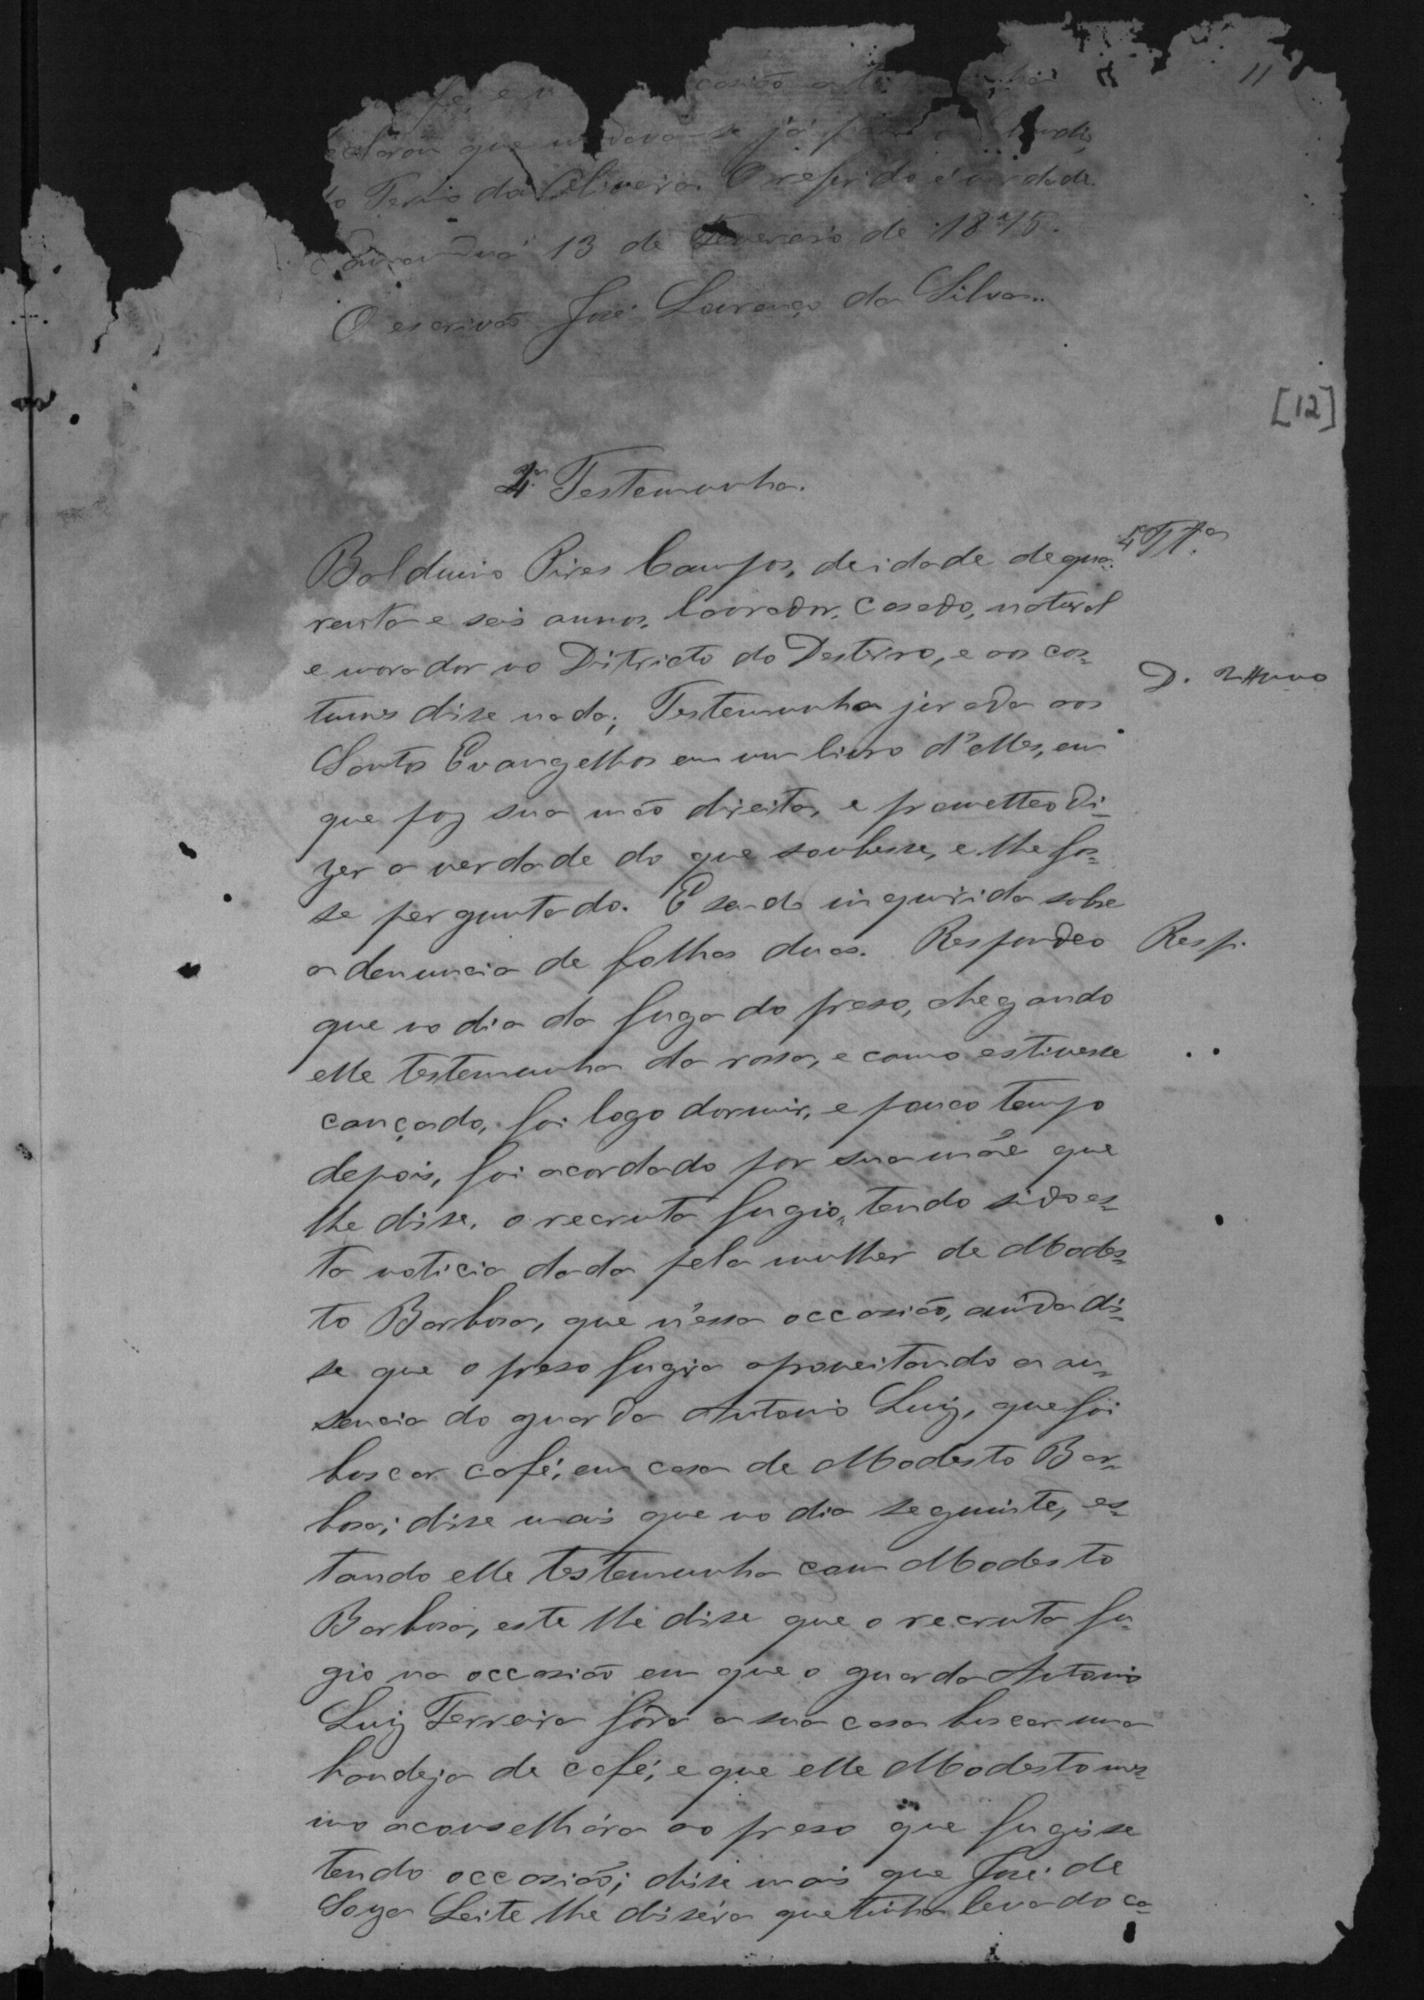 11
fé, e casião a te
que mudava-se já para
Termo da Oliveira. O referido é verdade.
13 de Fevereiro de 1875.
O escrivão José Lourenço da Silva.
[12]
4ª Testemunha.
Balduino Pires Campos, de idade de qua- 4ª Ttª
renta e seis annos, lavrador, casado, natural
e morador no Districto do Desterro, e aos cos-
tumes disse nada; Testemunha jurada aos D.
Santos Evangelhos em um livro d'elles, em
que poz sua mão direita, e prometteo di-
zer a verdade do que soubesse, e lhe fos-
se perguntado. E sendo inquirida sobre
a denuncia de folhas duas. Respondeo Resp.
que no dia da fuga do preso, chegando
elle testemunha da rossa, e como estivesse
cançado, foi logo dormir, e pouco tempo
depois, foi acordado por sua mãe que
lhe disse, o recruta fugio, tendo sido es-
ta noticia dada pela mulher de Modes-
to Barbosa, que n'essa occasião, ainda di-
se que o preso fugira aproveitando a au-
sencia do guarda Antonio Luiz, que foi
buscar café, em casa de Modesto Bar-
bosa; disse mais que no dia seguinte, es-
tando elle testemunha com Modesto
Barbosa, este lhe disse que o recruta fu-
gio na occasião em que o guarda Antonio
Luiz Ferreira fôra a sua casa buscar uma
bandeja de café, e que elle Modesto mes-
mo aconselhára ao preso que fugisse
tendo occasião; disse mais que José de
Soza Leite lhe disséra que tinha levado ca-